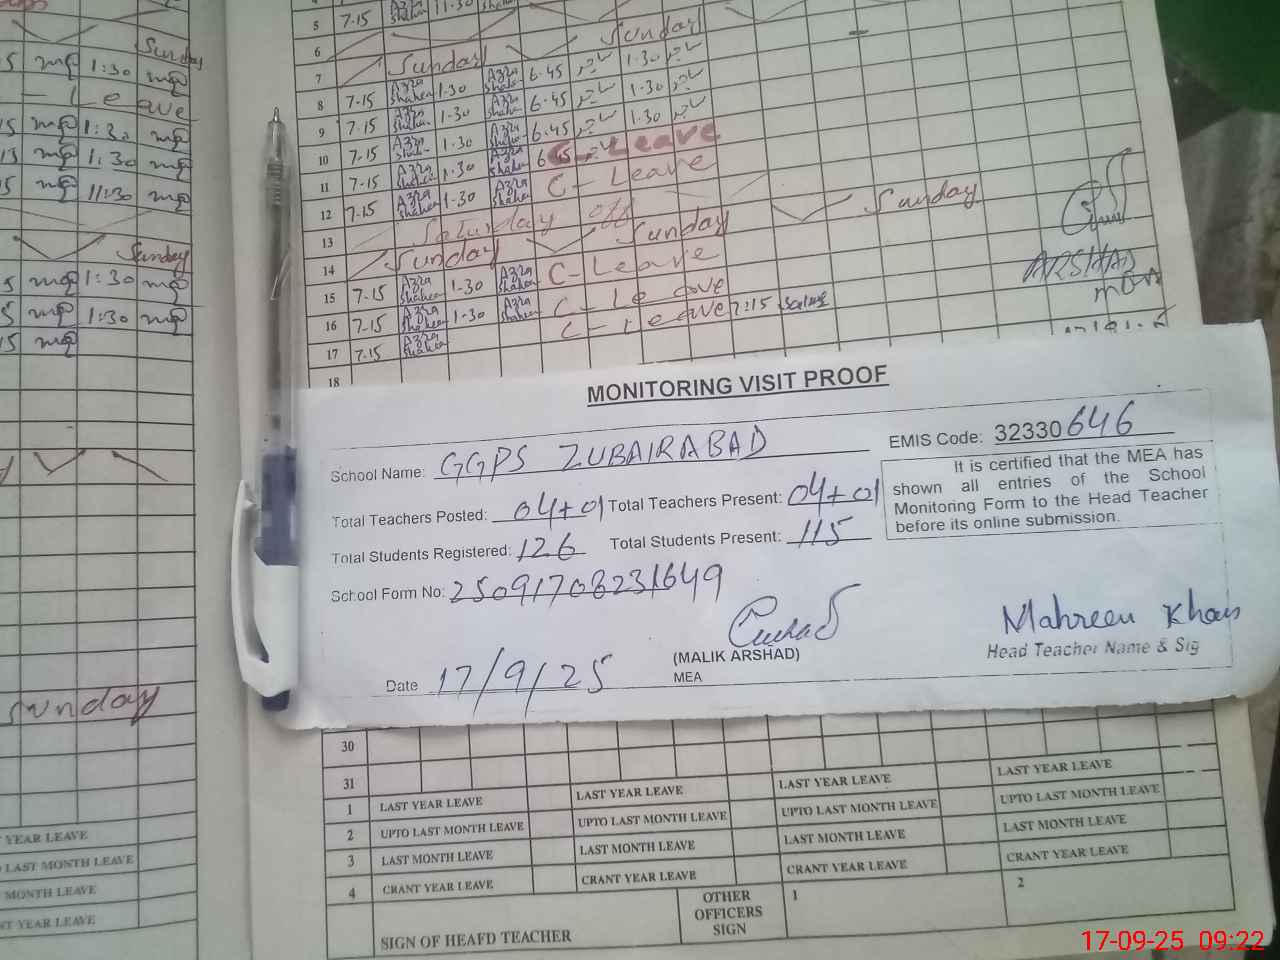 5 7-15 11-30
6
7 Sunday Sunday
8 7-15 Azra Shaheen 1-30 Azra Shaheen 6.45 1.30
9 7-15 Azra Shaheen 1-30 Azra Shaheen 6.45 1.30
10 7-15 Azra Shaheen 1-30 Azra Shaheen 6.45 1.30
11 7-15 Azra Shaheen 1-30 Azra Shaheen C-Leave
12 7-15 Azra Shaheen 1-30 Azra Shaheen C-Leave
13 Saturday off
14 Sunday Sunday Sunday
15 7-15 Azra Shaheen 1-30 Azra Shaheen C-Leave
16 7-15 Azra Shaheen 1-30 Azra Shaheen C-Leave
17 7-15 Azra Shaheen C-Leave 7:15
18
ARSHAD
MEA
Sunday
1:30
Leave
1:30
1:30
11:30
Sunday
1:30
1:30
Sunday
MONITORING VISIT PROOF
School Name: GGPS ZUBAIRABAD EMIS Code: 32330646
Total Teachers Posted: 04+01 Total Teachers Present: 04+01
Total Students Registered: 126 Total Students Present: 115
School Form No: 25091708231649
It is certified that the MEA has
shown all entries of the School
Monitoring Form to the Head Teacher
before its online submission.
(MALIK ARSHAD)
MEA
Date 17/9/25
Mahreen Khan
Head Teacher Name & Sig
30
31
1 LAST YEAR LEAVE LAST YEAR LEAVE LAST YEAR LEAVE LAST YEAR LEAVE
2 UPTO LAST MONTH LEAVE UPTO LAST MONTH LEAVE UPTO LAST MONTH LEAVE UPTO LAST MONTH LEAVE
3 LAST MONTH LEAVE LAST MONTH LEAVE LAST MONTH LEAVE LAST MONTH LEAVE
4 CRANT YEAR LEAVE CRANT YEAR LEAVE CRANT YEAR LEAVE CRANT YEAR LEAVE
YEAR LEAVE
LAST MONTH LEAVE
MONTH LEAVE
YEAR LEAVE
SIGN OF HEAFD TEACHER
OTHER
OFFICERS
SIGN
1
2
17-09-25 09:22